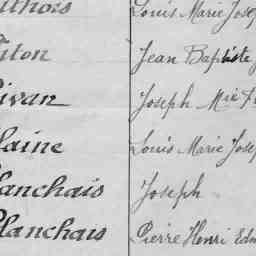 Louis Marie Jose
Jean Baptiste
Joseph Mie
laine Louis Marie Josep
lanchais Joseph
Planchais Pierre Henri Edm